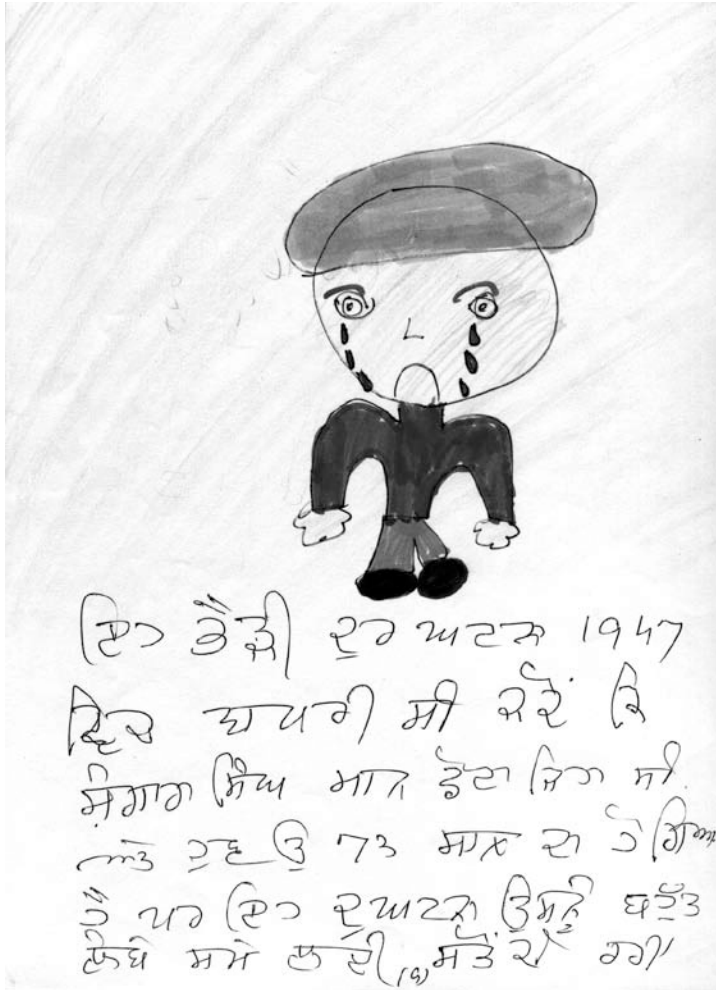 ਇਹ ਭੈੜੀ ਦੁਰਘਟਨਾ 1947
ਵਿਚ ਵਾਪਰੀ ਸੀ ਜਦੋਂ ਕਿ
ਸ਼ੰਗਾਰਾ ਸਿੰਘ ਮਾਨ ਛੋਟਾ ਜਿਹਾ ਸੀ
ਅਤੇ ਹੁਣ ਉਹ 73 ਸਾਲ ਦਾ ਹੋ ਗਿਆ
ਹੈ ਪਰ ਇਹ ਦੁਘਟਨਾ ਉਸਨੂੰ ਬਹੁੱਤ
ਲੰਬੇ ਸਮੇਂ ਲਈ ਰਹੀ